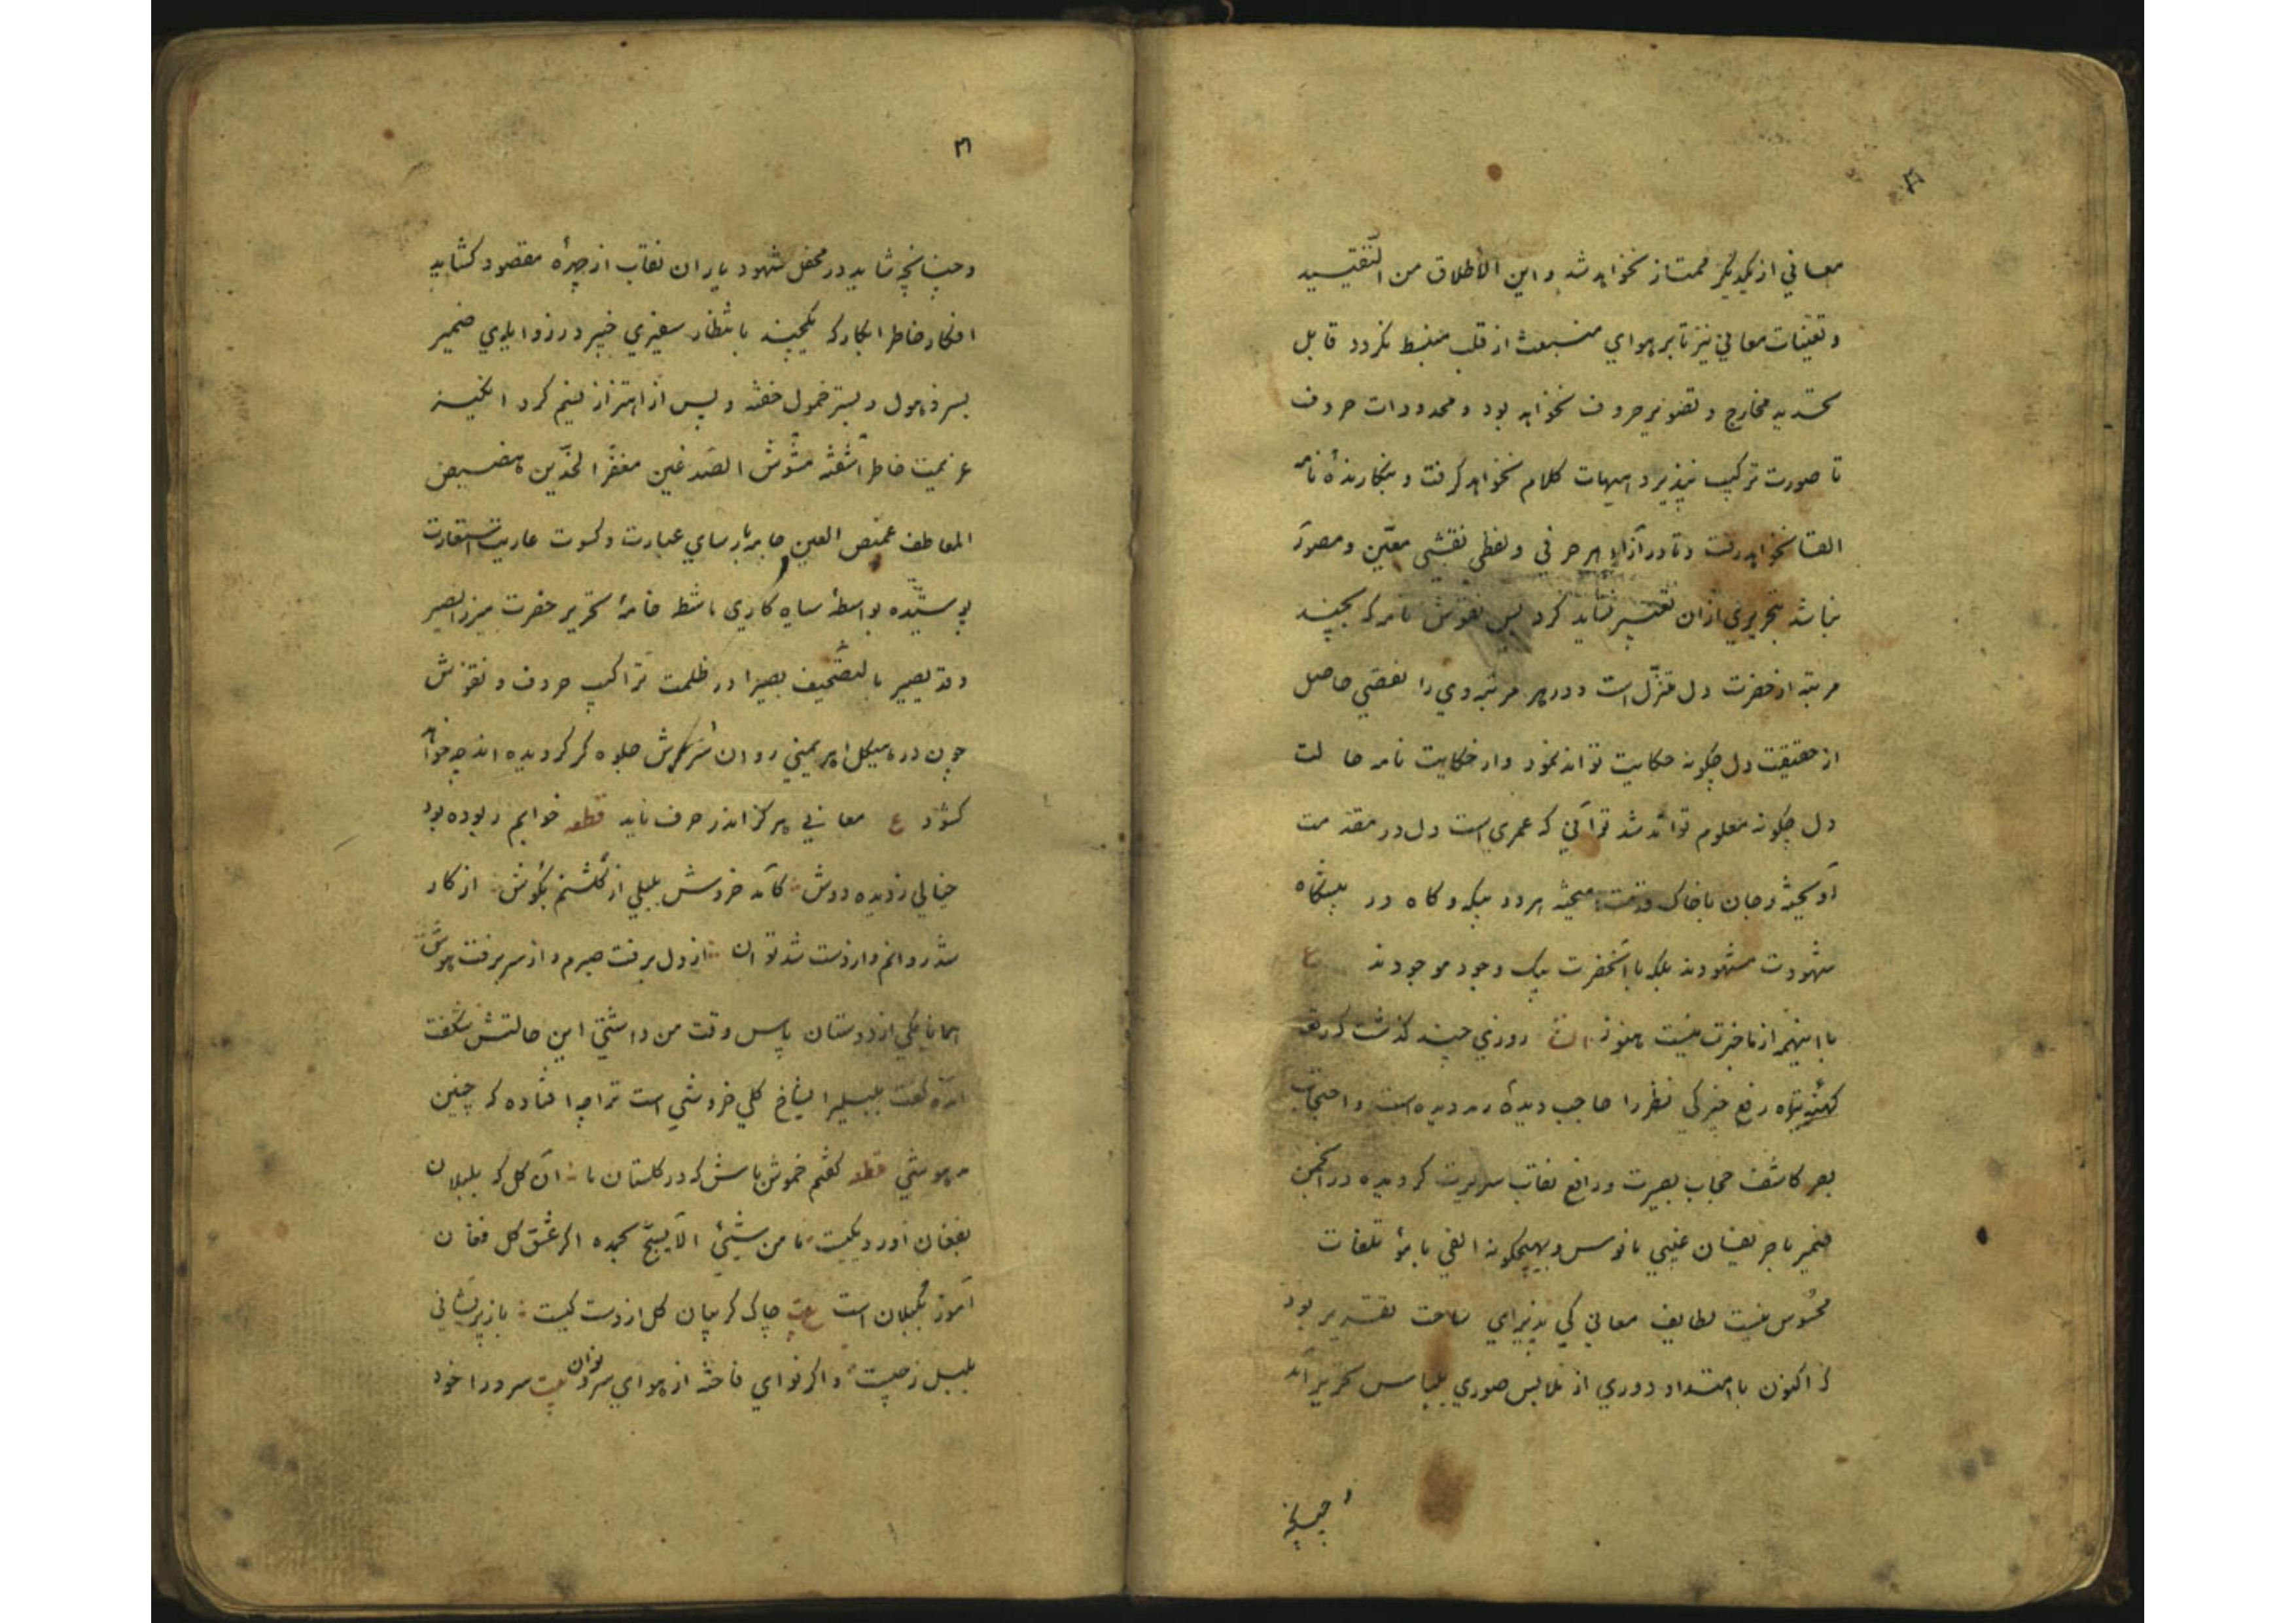 معاني از یکدیگر ممتاز نخواهد شد و این الاطلاق من التقیید
و تعینات معاني نیز تا بر هواي منبعث از قلب منبسط نگردد قابل
تحدید مخارج و تصویر حروف نخواهد بود و محدودات حروف
تا صورت ترکیب نپذیرد هیهات کلام نخواهد گرفت و نگارندهٔ نامه
القا نخواهد و تا در ازاي هر حرفي و لفظي نقشي معین و مصور
نباشد بتحریري از آن تعبیر نشاید کرد پس نقوش نامه که بچند
مرتبه از حضرت دل متنزل است و در هر مرتبه وي را نقصي حاصل
از حقیقت دل چگونه حکایت تواند نمود و از حکایت نامه حالت
دل چگونه معلوم تواند شد تو آني که عمري است دل در مقدمت
آویخته و جان با خاک قدمت هر دو بیگه و گاه در پیشگاه
شهودت مشهودند بلکه با آنحضرت بیک وجود موجودند ع
با اینهمه از ما خبرت نیست هنوز روزي چند گذشت که
رفع نظر را حاجب دیدهٔ است و احتجاب
بصر کاشف حجاب بصیرت و رافع نقاب سریرت گردیده در انجمن
ضمیر با حریفان غیبي مانوس و بهیچگونه الفي با مؤتلفات
محسوس نیست لطایف معاني کي پذیراي ساحت تقریر بود
که اکنون با امتداد دوري از ملابس صوري بلباس تحریر آید
و چنانچه
۳
و چنانچه شاید در محفل شهود یاران نقاب از چهرهٔ مقصود گشاید
افکار خاطر ابکار که یکچند بانتظار سفیري خبیر در زوایاي ضمیر
بسر ذهول و بستر خمول خفته و پس از اهتزاز نسیم کرد انگیز
عزیمت خاطر آشفته مشوش الصدغین مغفر الخدین
المعاطف غمص العین جامه پارساي عبارت و کسوت عاریت استعارت
پوشیده بواسطهٔ سیاه کاري ماشطه خامهٔ تحریر حضرت میرزا بصیر
و قد یصیر بالتصحیف بصیرا در ظلمت تراکیب حروف و نقوش
چون در هیکل اهریمني روان سروش جلوه گر گردیده اند چه خواهد
گشود ع معاني هرگز اندر حرف ناید قطعه خوابم ربوده بود
خیالي ز دیده دوش کآمد خروش بلبلي از گلشنم بگوش از کار
شد روانم و از دست شد توان از دل برفت صبرم و از سر برفت هوش
همانا یکي از دوستان پاس وقت من داشتي این حالتش شگفت
آمده گفت بلبلرا بشاخ گلي خروشي است ترا چه افتاده که چنین
مدهوشي قطعه گفتم خموش باش که در گلستان ما آن گل که بلبلان
بفغان آورد یکیست ما من شیئ الا یسبح بحمده اگر عشق گل فغان
آموز بلبلان است بیت چاک گریبان گل از دست کیست باز پریشاني
بلبل ز چیست و اگر نواي فاخته از هواي سرو روان بیت سرو را خود